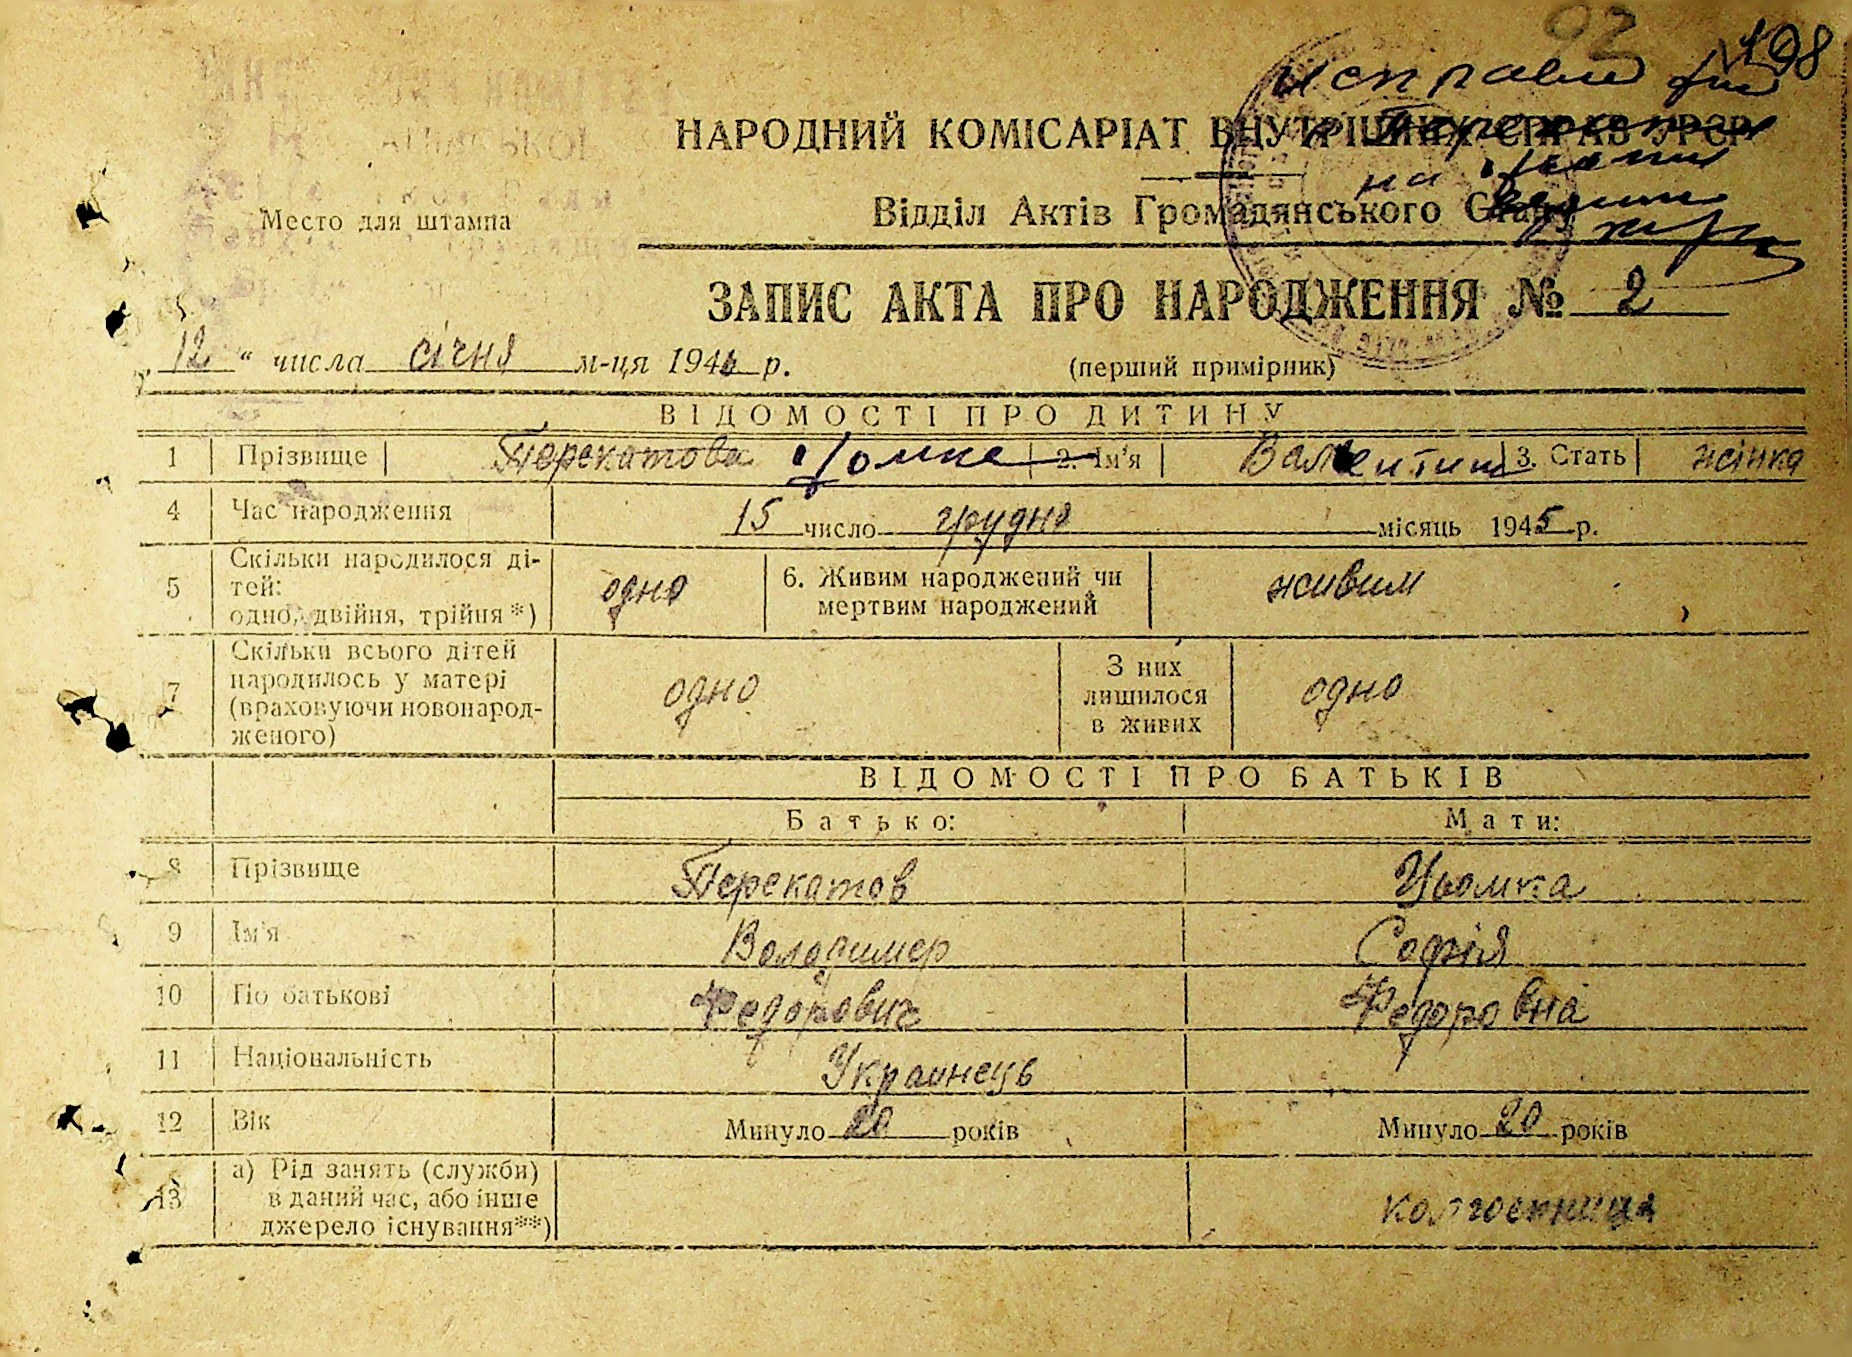 198
Исправлен
НАРОДНИЙ КОМІСАРІАТ ВНУТРІШНІХ СПРАВ УРСР
на
Место для штампа
Відділ Актів Громадянського Стану
ЗАПИС АКТА ПРО НАРОДЖЕННЯ № 2
12 " числа січня м-ця 1946 р. (перший примірник)
ВІДОМОСТІ ПРО ДИТИНУ
1 Прізвище Перекатова Цомка 2. Ім'я Валентина 3. Стать жінка
4 Час народження 15 число грудня місяць 1945 р.
5 Скільки народилося ді-
тей:
одно, двійня, трійня *) одно 6. Живим народжений чи
мертвим народжений живим
7 Скільки всього дітей
народилось у матері
(враховуючи новонарод-
женого) одно З них
лишилося
в живих одно
ВІДОМОСТІ ПРО БАТЬКІВ
Батько: Мати:
8 Прізвище Перекатов Цьомка
9 Ім'я Володимер Софія
10 По батькові Федорович Федоровна
11 Національність Украинець
12 Вік Минуло 20 років Минуло 20 років
13 а) Рід занять (служби)
в даний час, або інше
джерело існування**) колгоспниця